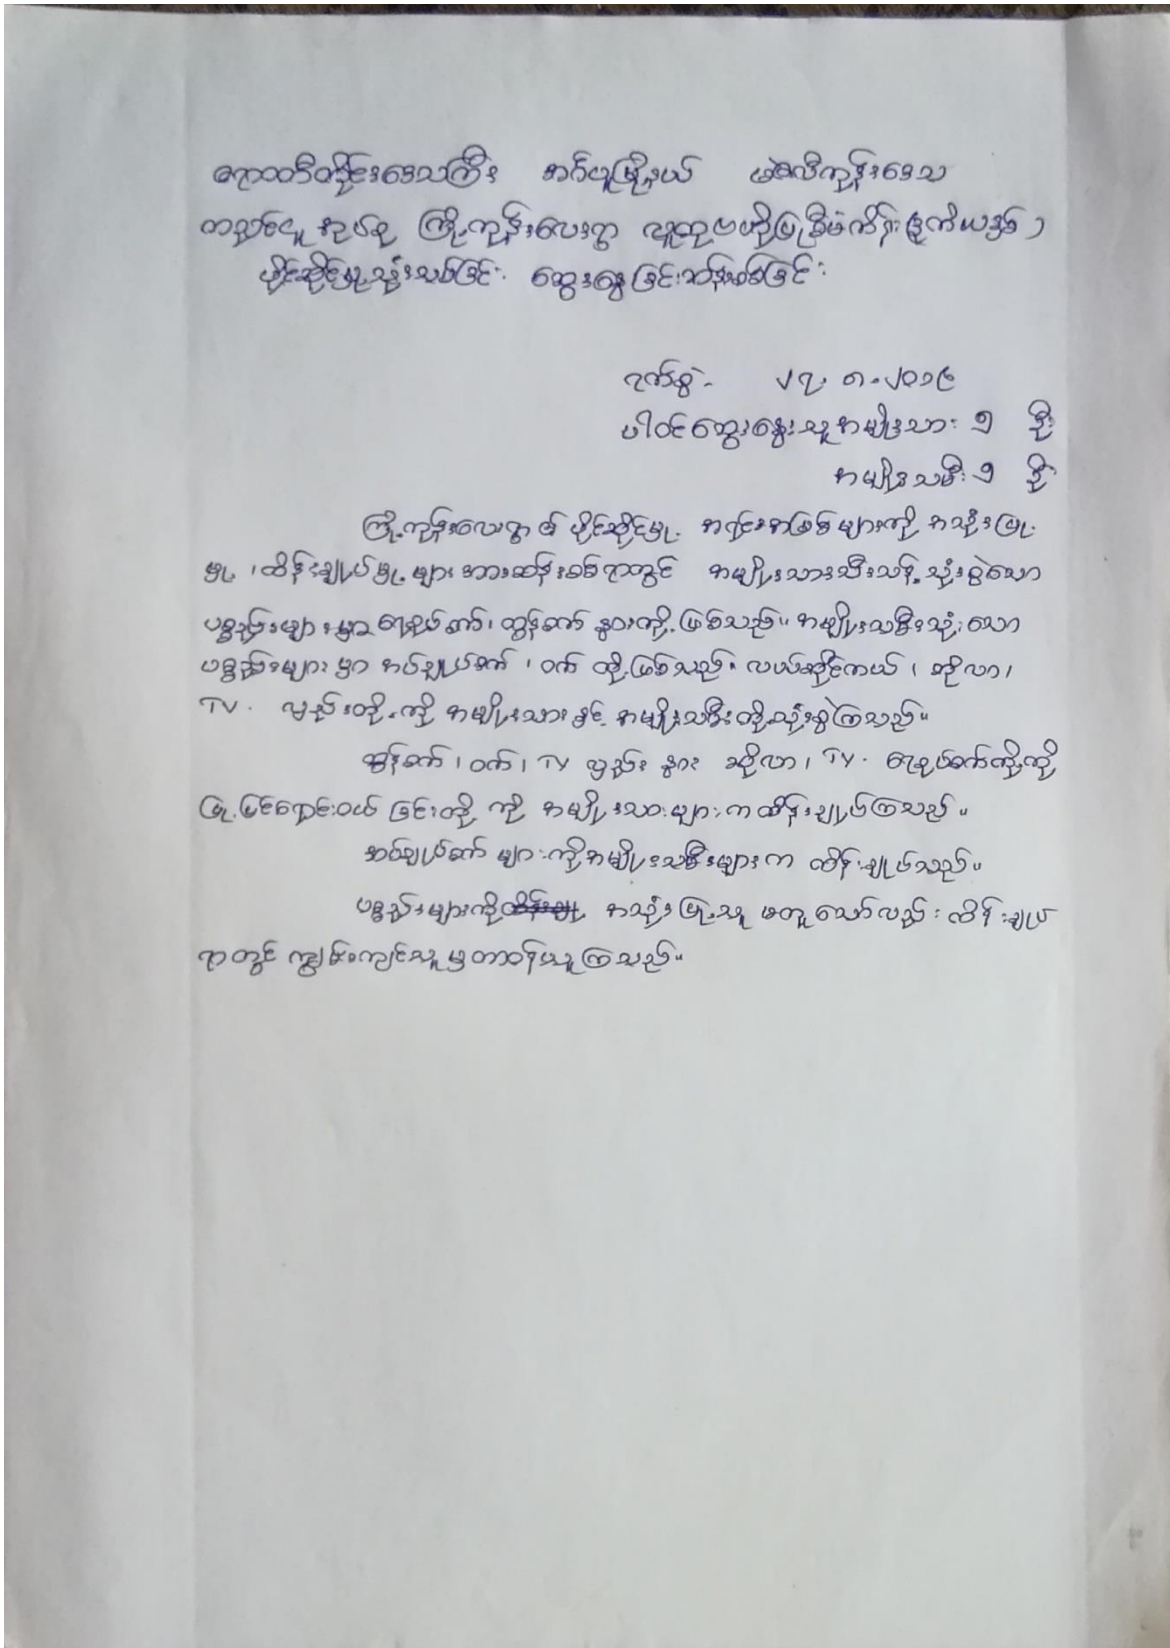 ဧရာဝတီတိုင်းဒေသကြီး အင်္ဂပူမြို့နယ် မဲဇလီကုန်းဒေသ
ကညင်ငူ အုပ်စု ကြို့ကုန်းလေးရွာ လူထုဗဟိုပြုစီမံကိန်း
ပိုင်ဆိုင်မှု့သုံးသပ်ခြင်း ဆွေးနွေးခြင်းဆန်းစစ်ခြင်း
ရက်စွဲ - ၂၇.၈.၂၀၁၉
ပါဝင်ဆွေးနွေးသူအမျိုးသား ၅ ဦး
အမျိုးသမီး ၅ ဦး
ကြို့ကုန်းလေးရွာ ၏ ပိုင်ဆိုင်မှု့ အရင်းအမြစ်များကို အသုံးပြု
မှု့၊ ထိန်းချုပ်မှု့များအားဆန်းစစ်ရာတွင် အမျိုးသားသီးသန့်သုံးစွဲသော
ပစ္စည်းများမှာ ရေစုပ်စက်၊ ထွန်စက် နွားတို့ဖြစ်သည်။ အမျိုးသမီးသုံးသော
ပစ္စည်းများမှာ အပ်ချုပ်စက်၊ ဝက် တို့ဖြစ်သည်။ လယ်ဆိုင်ကယ်၊ ဆိုလာ၊
TV. လှည်းတို့ကို အမျိုးသားနှင့် အမျိုးသမီးတို့သုံးစွဲကြသည်။
ထွန်စက်၊ ဝက်၊ TV လှည်း နွား ဆိုလာ၊ TV. ရေစုပ်စက်တို့ကို
ပြုပြင်ရောင်းဝယ်ခြင်းတို့ ကို အမျိုးသားများကထိန်းချုပ်ကြသည်။
အပ်ချုပ်စက် များကိုအမျိုးသမီးများက ထိန်းချုပ်သည်။
ပစ္စည်းများကို အသုံးပြုသူ မတူသော်လည်း ထိန်းချုပ်
ရာတွင် ကျွမ်းကျင်သူမှတာဝန်ယူကြသည်။